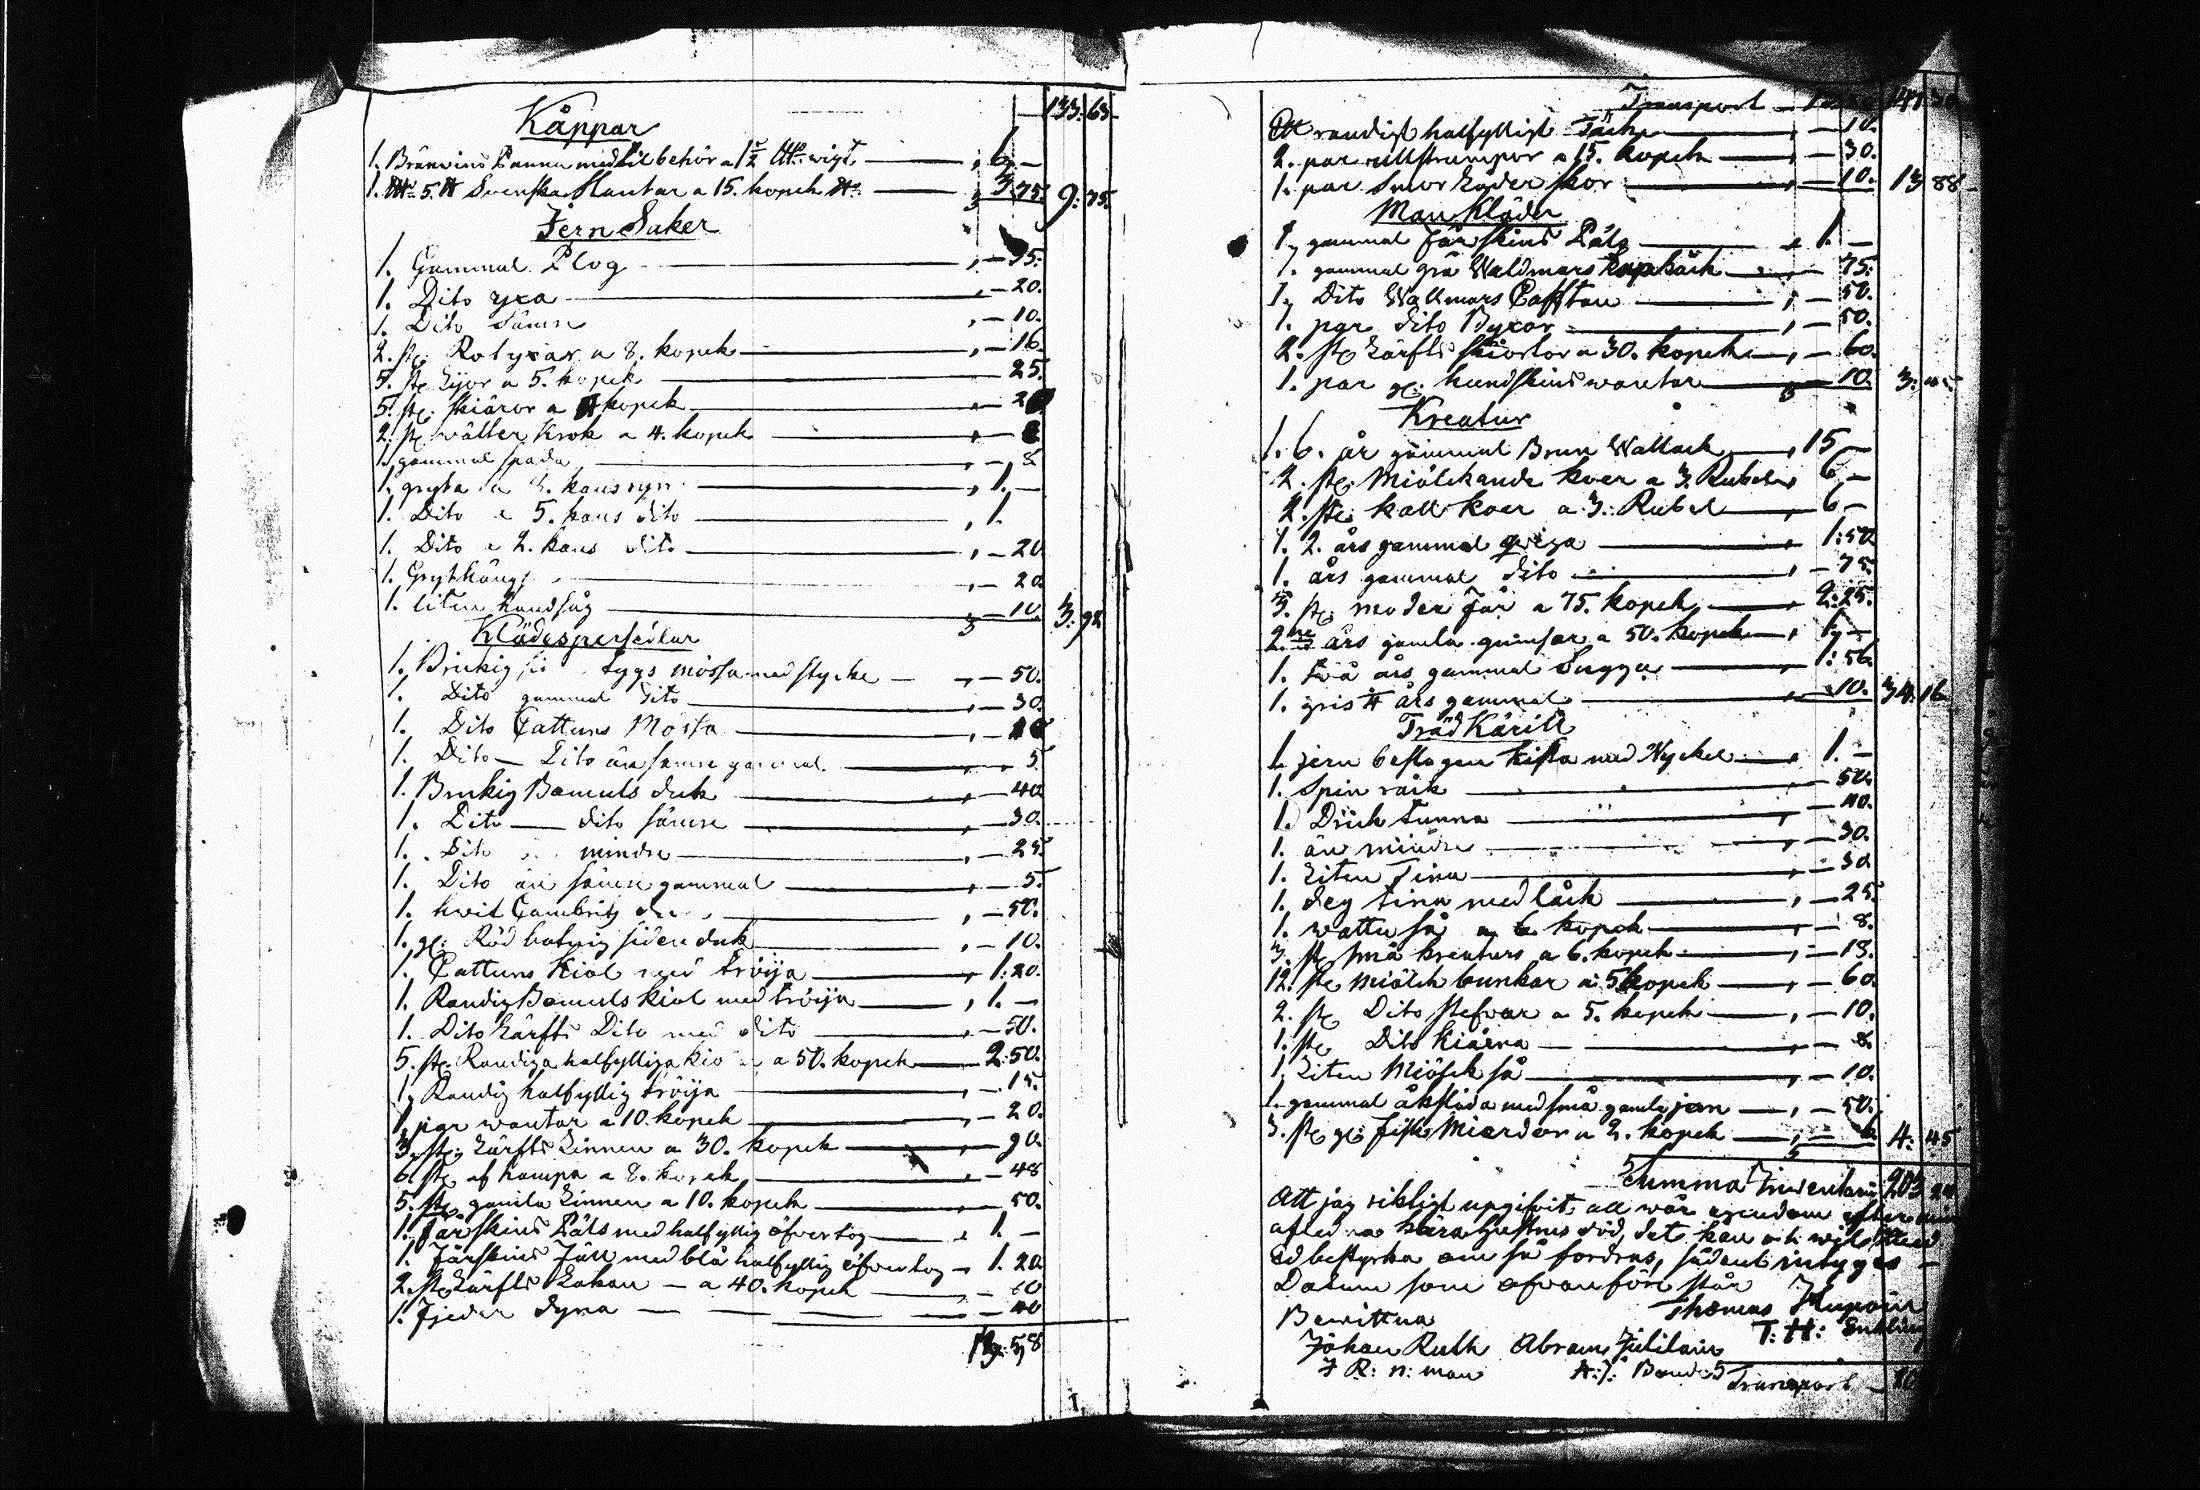 133: 63
Kåppar
1. Bränvins Panna med tilbehör a 1½ wigt — 6 —
1. 5. Svenska Slantar a 15. kopek — 3: 75. 9: 75.
Jern Saker
1. Gammal Plog — 35.
1. Dito yxa — 20.
1. Dito sämre — 10.
2. st. Rotyxar a 8. kopek — 16.
5. st. Lijor a 5. kopek — 25.
5. st. skiäror a 4 kopek — 20
2. st. wälter krok a 4. kopek — 8
1. gammal spada — 8
1. gryta a kaus rym — 1. —
1. Dito a 5. kaus dito — 1.
1. Dito a 2. kaus dito — 20
1. Grythäng — 20
1. liten handsåg — 10. 3: 92
Klädespersedlar
1. Brukig tygs mössa med stycke — 50.
1. Dito gammal dito — 30.
1. Dito Cattuns Mössa — 10
1. Dito — Dito än sämre gammal — 5.
1. Brukig Bomuls duk — 40
1. Dito — dito sämre — 30.
1. Dito mindre — 25
1. Dito än sämre gammal — 5.
1. hwit Cambrits — 50.
1. gl: Röd botnig siden duk — 10.
1. Cattuns Kiol med tröija — 1: 20.
1. Randig Bomuls kiol med tröija — 1. —
1. Dito Lärfts Dito med dito — 50.
5. st. Randiga halfylliga a 50. kopek — 2: 50.
1. Randig halfyllig tröija — 15.
1. par wantar a 10. kopek — 20.
3. st. Lärfts Linnen a 30. kopek — 90.
6. st. af hampa a 8. kopek — 48
5. st. gamla Linnen a 10. kopek — 50.
1. Fårskins Päls med halfyllig öfvertog — 1. —
1. Fårskins Fäll med blå halfyllig öfvertog — 1. 20
2. st. Lärfts Lakan — a 40. kopek — 80
1. Fjeder dyna — 40
13: 58
Transport — 13: 58 147: 30
Ett randigt halfylligt Täcke — 10.
2. par ullstrumpor a 15. kopek — 30.
1. par Smorläder skor — 10. 13 88
Mans Kläder
1. gammal Fårskins Päls — 1. —
1. gammal grå Waldmars kapråck — 75.
1. Dito Wallmars Cafftan — 50.
1. par dito Byxor — 50.
2. st. Lärfts skiortor a 30. kopek — 60.
1. par gl: hundskins wantar — 10. 3: 45
Kreatur
1. 6. år gammal Brun Wallack — 15 —
2. st. Miölckande koer a 3. Rubel — 6 —
2. st. kall koer a 3: Rubel — 6 —
1. 2. års gammal qwiga — 1: 50
1. års gammal dito — 75.
3. st. moder Får a 75. kopek — 2: 25.
2ne års gamla gumsar a 50. kopek — 1. —
1. två års gammal Sugga — 1: 56
1. gris ½ års gammal — 10. 34: 16
Träd Kärill
1. jern beslagen Kista med Nyckel — 1. —
1. Spin råck — 50.
1. Drick tunna — 40.
1. än mindre — 30.
1. Liten Tina — 30
1. deg tina med låck — 25.
1. wattu så a kopek — 8.
3. st. små kreaturs a 6. kopek — 18.
12. st. Miölck bunkar a 5 kopek — 60.
2. st. Dito stefvar a 5. kopek — 10.
1. st. Dito Kiärna — 8.
1. Liten Miölck så — 10.
1. gammal åksläda med små gamla jern — 50.
3. st. gl: fisk Mierdor a 2. kopek — 6 4: 45
Summa Inventarii 203 24
Att jag rikligt upgifvit all wår egendom efter min
afledna kära hustrus död, det kan och wil med
Ed bestyrka om så fordras, sådant intygas —
Datum som ofvanföre står
Thomas Hupoin
T: H: Enkling
Bewittna
Johan Ruth Abram
J R: n: man A: J: Bonde
Transport —